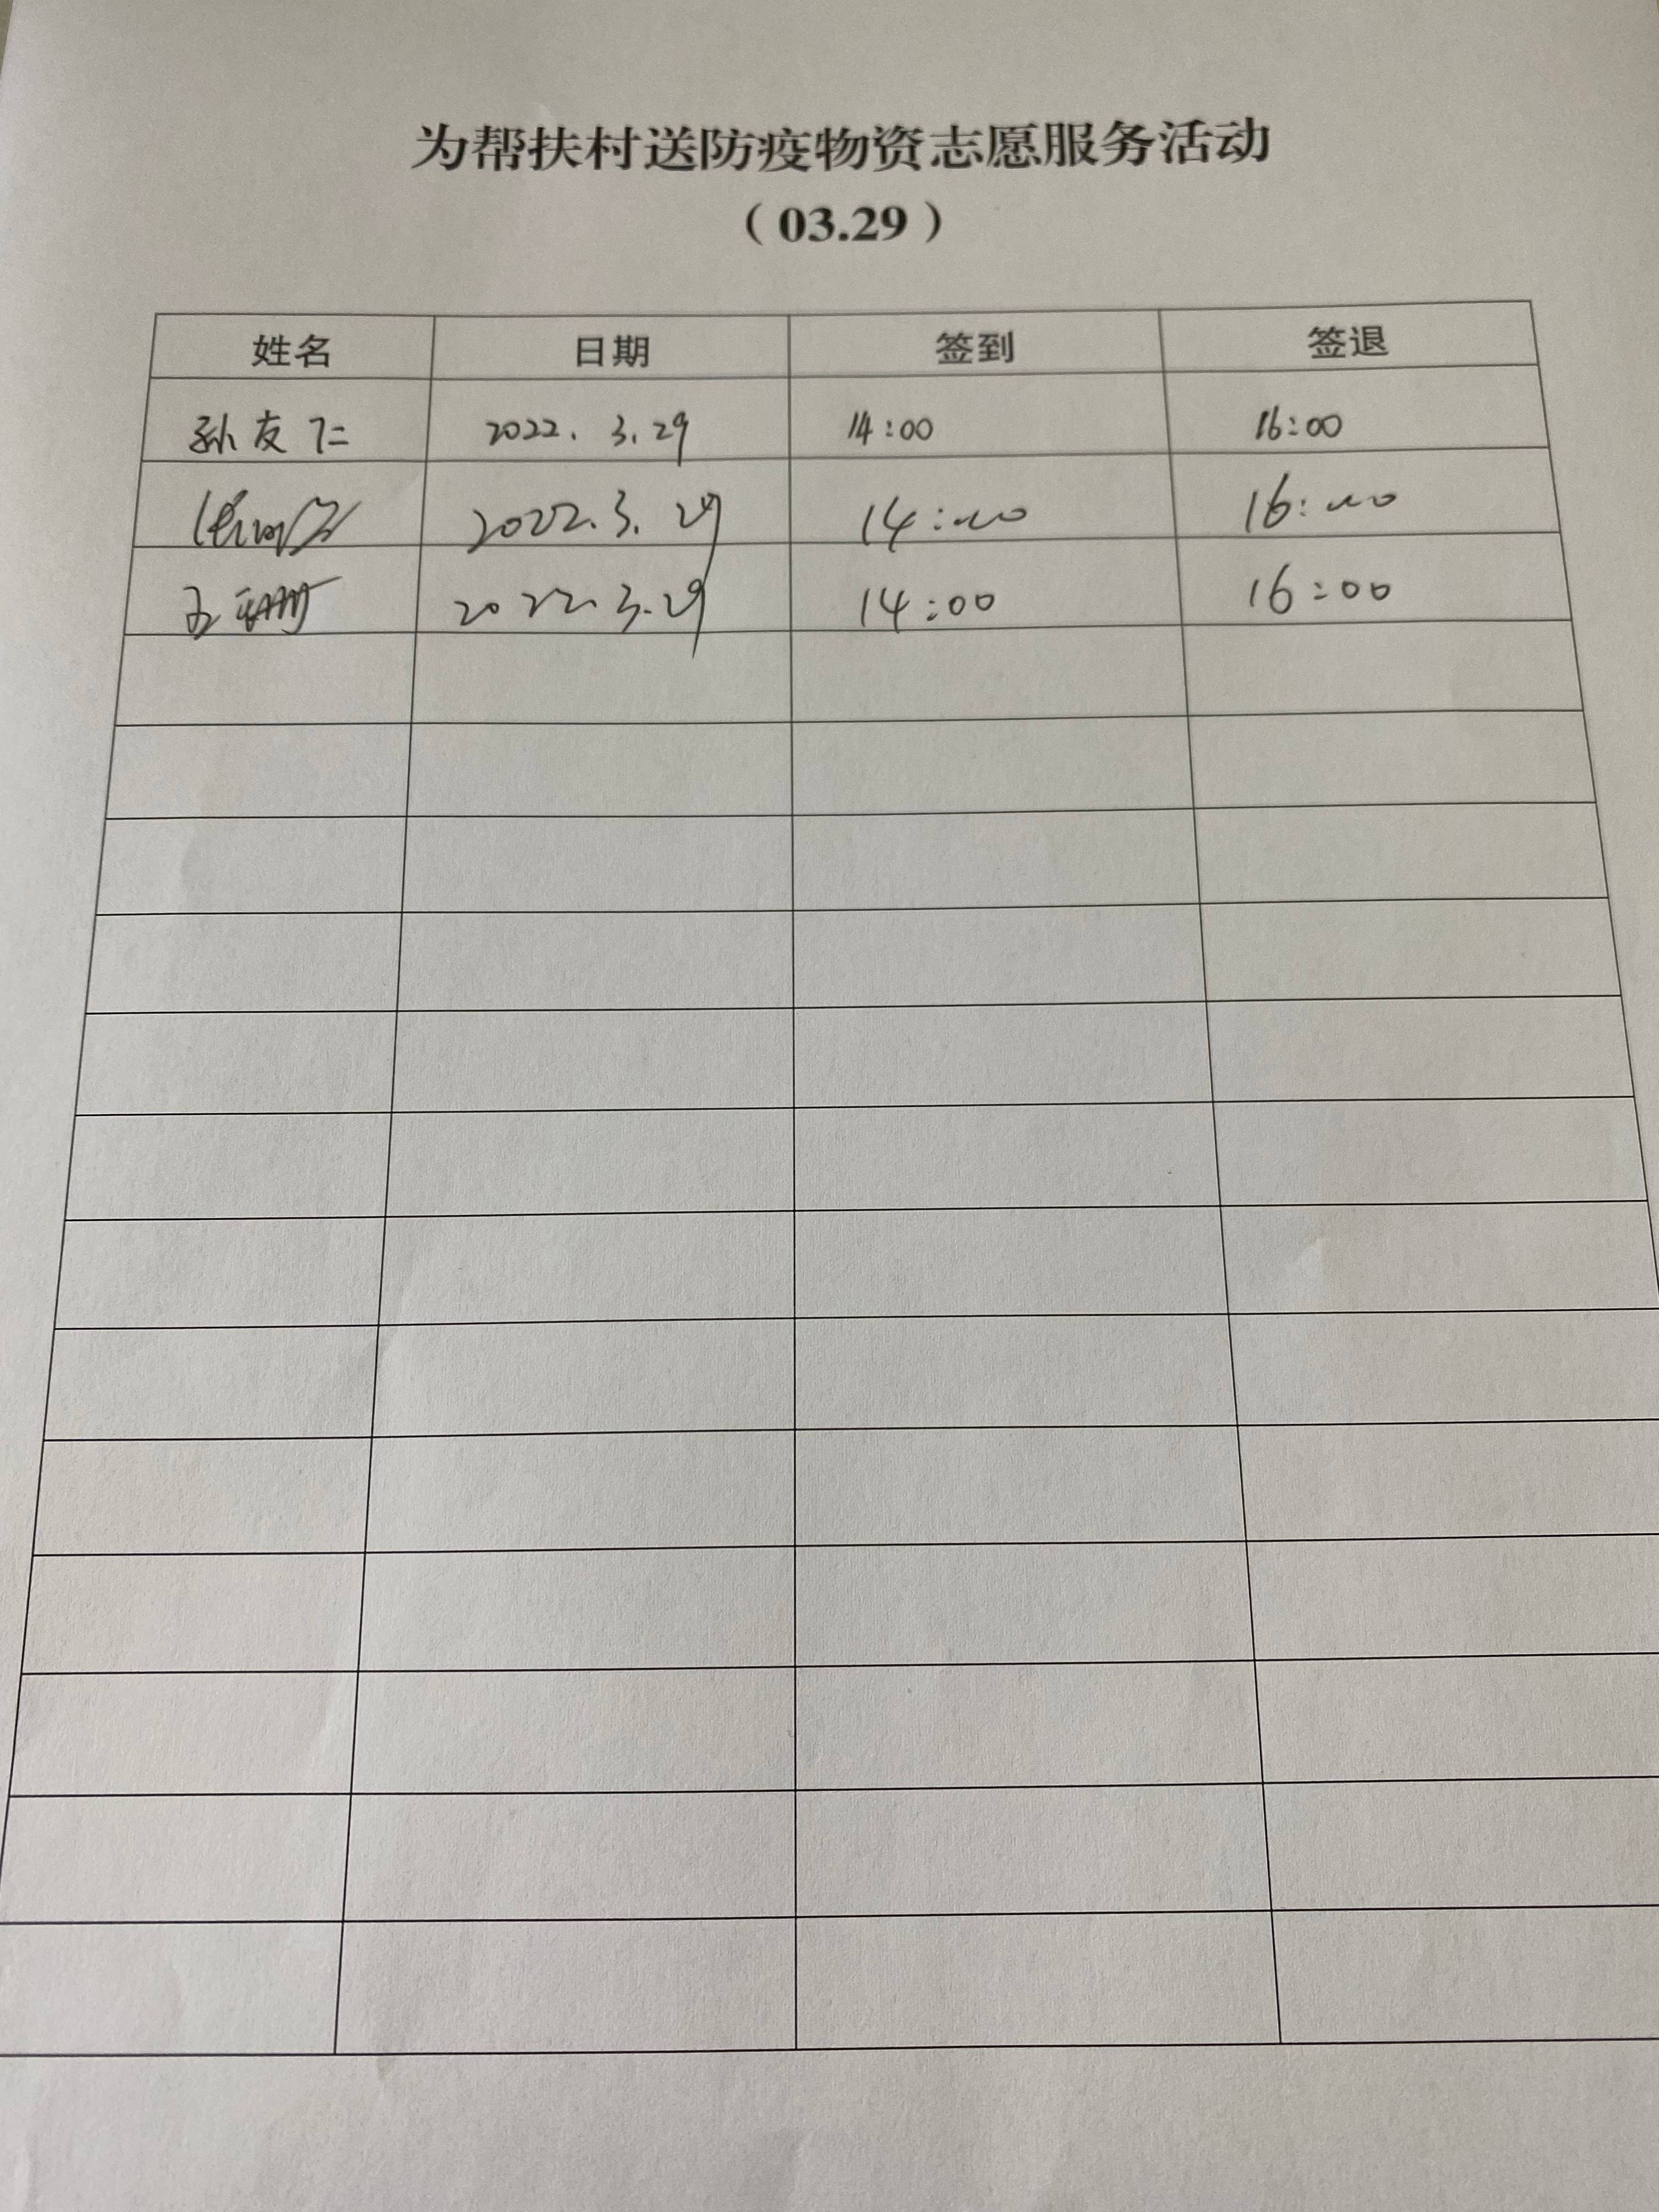 为帮扶村送防疫物资志愿服务活动
（03.29）
姓名 日期 签到 签退
孙友仁 2022. 3.29 14:00 16:00
2022.3.29 14:00 16:00
2022.3.29 14:00 16:00